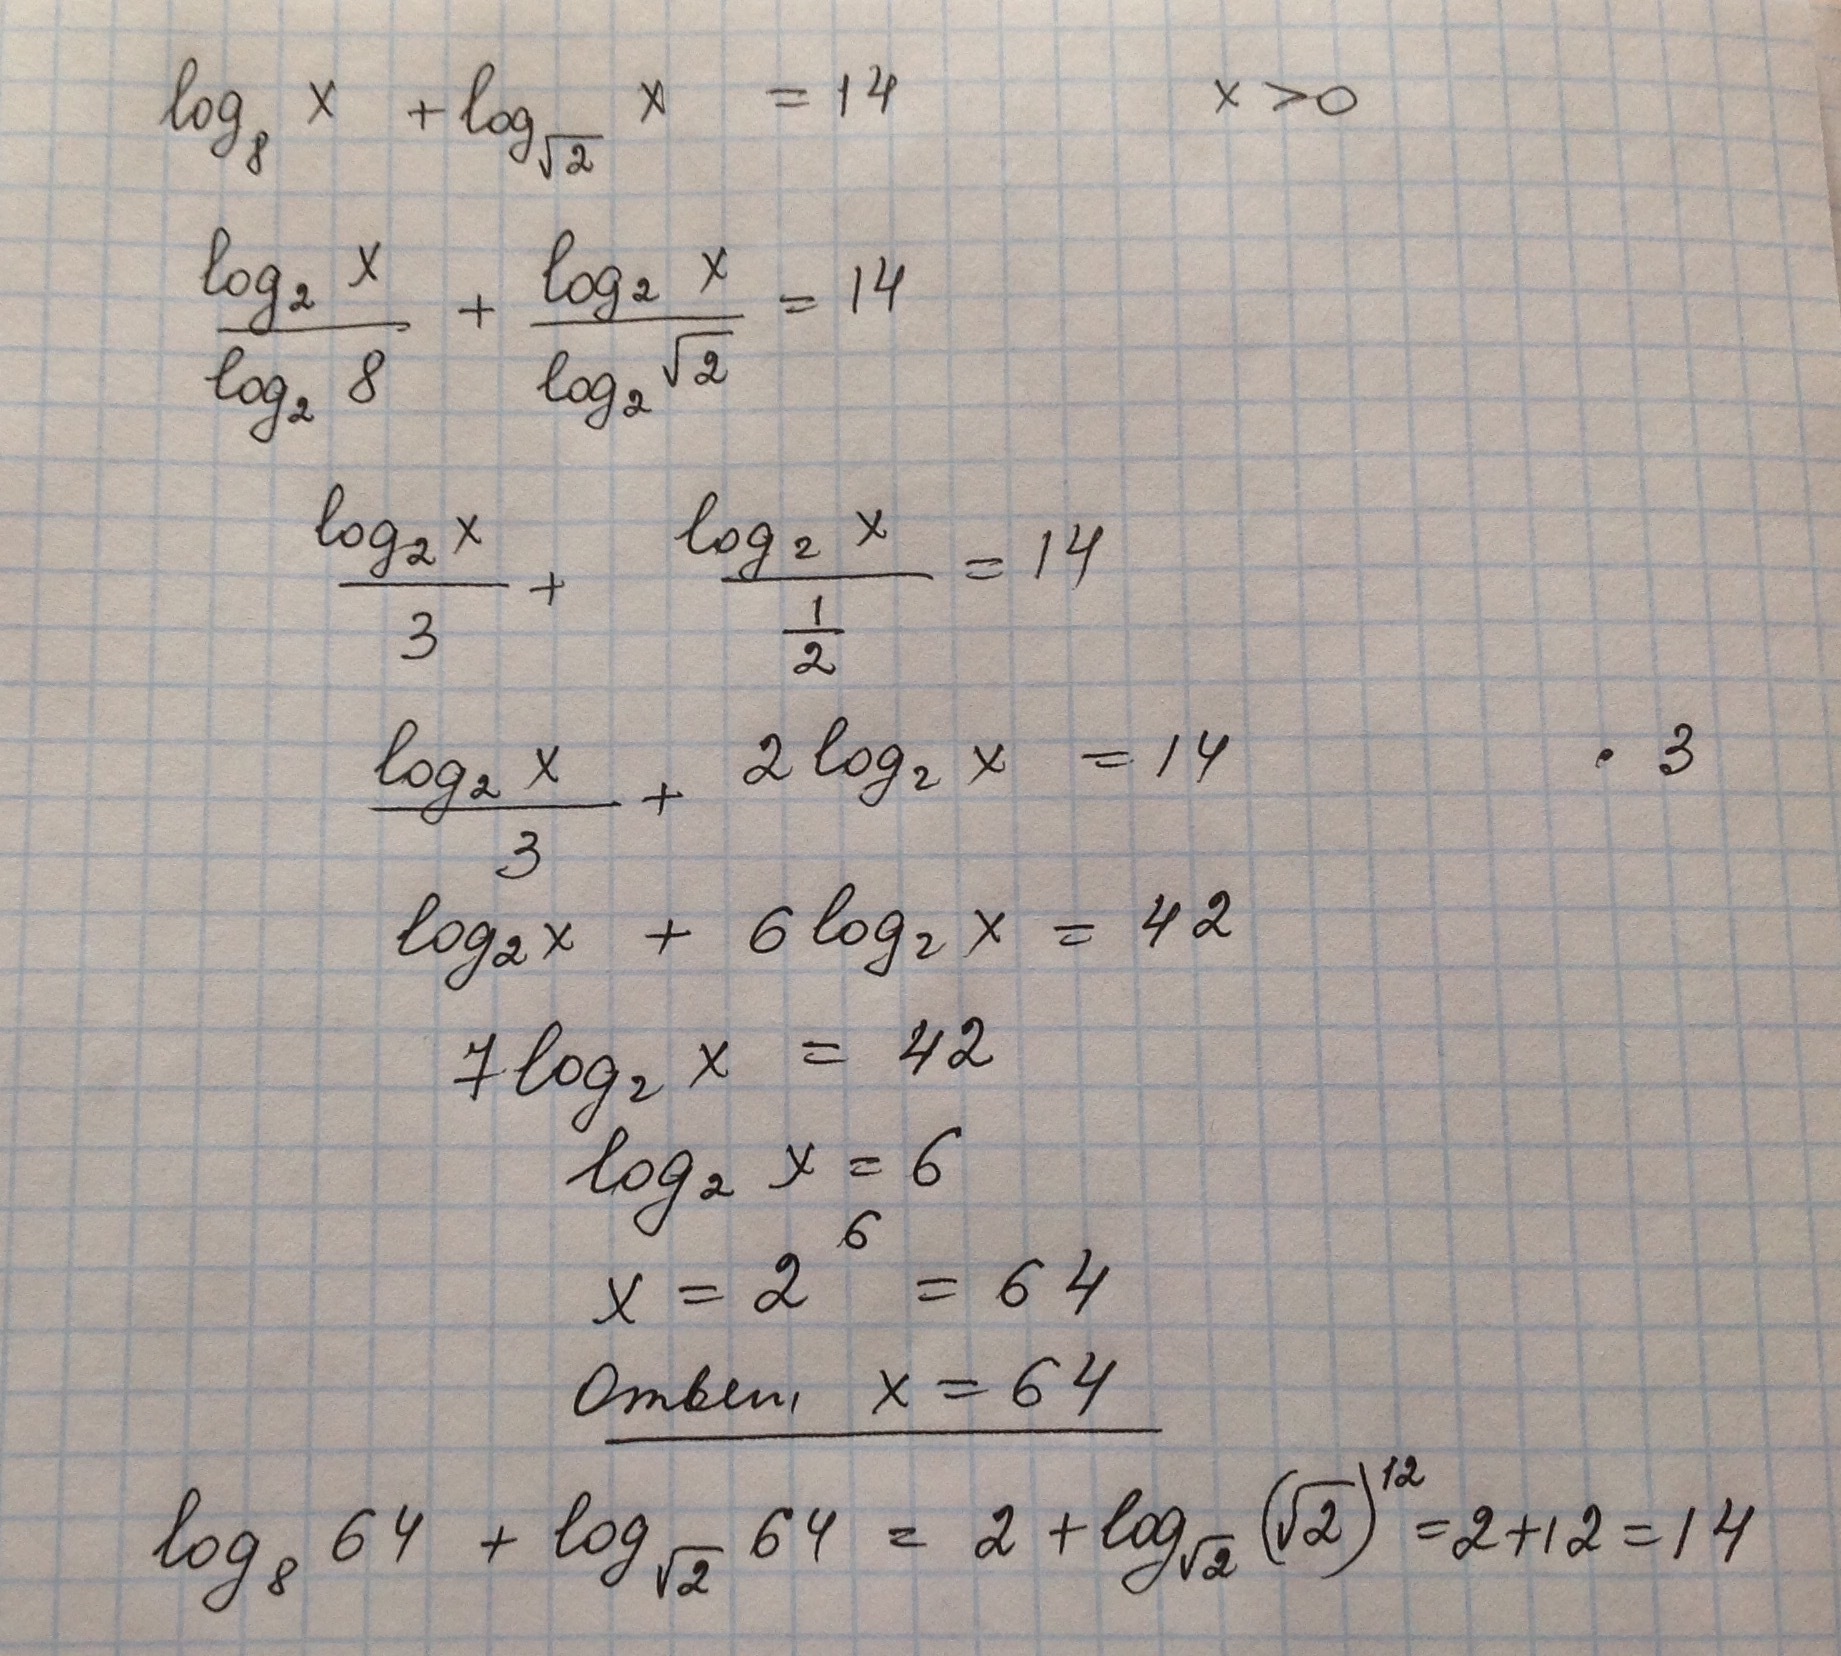 log₈ x + log_√2 x = 14 x > 0
log₂ x / log₂ 8 + log₂ x / log₂ √2 = 14
log₂ x / 3 + log₂ x / (1/2) = 14
log₂ x / 3 + 2 log₂ x = 14 · 3
log₂ x + 6 log₂ x = 42
7 log₂ x = 42
log₂ x = 6
x = 2⁶ = 64
Ответ, x = 64
log₈ 64 + log_√2 64 = 2 + log_√2 (√2)¹² = 2 + 12 = 14